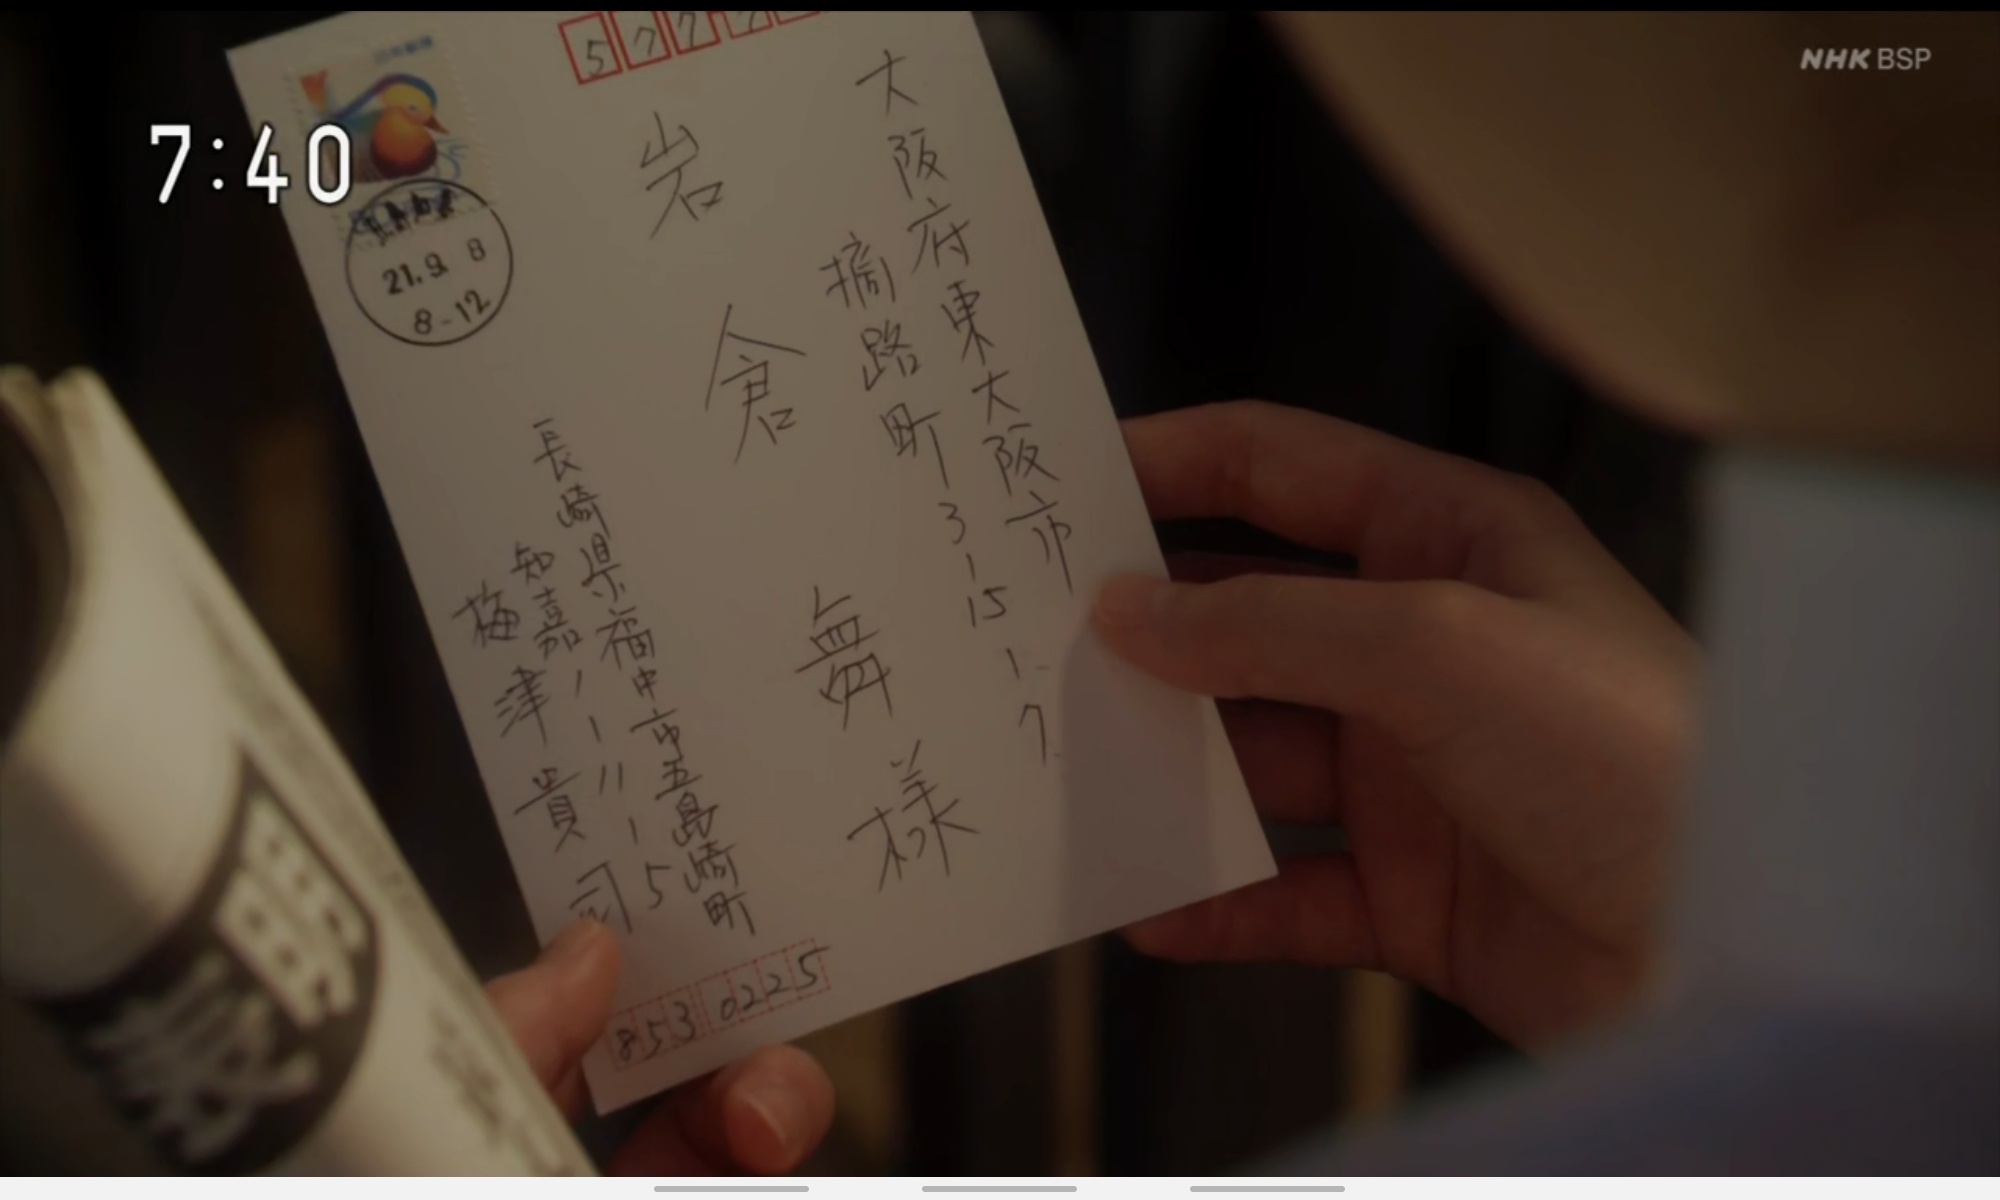 7:40
NHK BSP
577
大阪府東大阪市
摘路町3-15-1-7
岩倉 舞 様
21.9.8
8-12
長崎県福中市五島崎町
知嘉ノ-11-5
梅津貴司
853 0225